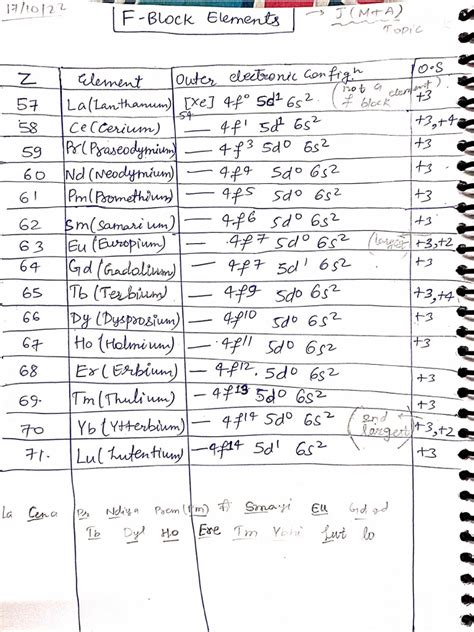 17/10/22
F-Block Elements → J(M+A) Topic
Z Element Outer electronic Config'n O.S
57 La(lanthanum) [Xe]54 4f⁰ 5d¹ 6s² (not a element f block) +3
58 Ce(Cerium) — 4f¹ 5d¹ 6s² +3,+4
59 Pr(Praseodymium) — 4f³ 5d⁰ 6s² +3
60 Nd(Neodymium) — 4f⁴ 5d⁰ 6s² +3
61 Pm(Promethium) — 4f⁵ 5d⁰ 6s² +3
62 Sm(Samarium) — 4f⁶ 5d⁰ 6s² +3
63 Eu(Europium) — 4f⁷ 5d⁰ 6s² (largest) +3,+2
64 Gd(Gadolium) — 4f⁷ 5d¹ 6s² +3
65 Tb(Terbium) — 4f⁹ 5d⁰ 6s² +3,+4
66 Dy(Dysprosium) — 4f¹⁰ 5d⁰ 6s² +3
67 Ho(Holmium) — 4f¹¹ 5d⁰ 6s² +3
68 Er(Erbium) — 4f¹². 5d⁰ 6s²
69. Tm(Thulium) — 4f¹³ 5d⁰ 6s² +3
70 Yb(Ytterbium) — 4f¹⁴ 5d⁰ 6s² (2nd largest) +3,+2
71. Lu(Lutentium) — 4f¹⁴ 5d¹ 6s² +3
La Cena Pr Ndiya Eu Gd
Tb Dyl Ho Ere Tm Lut lo